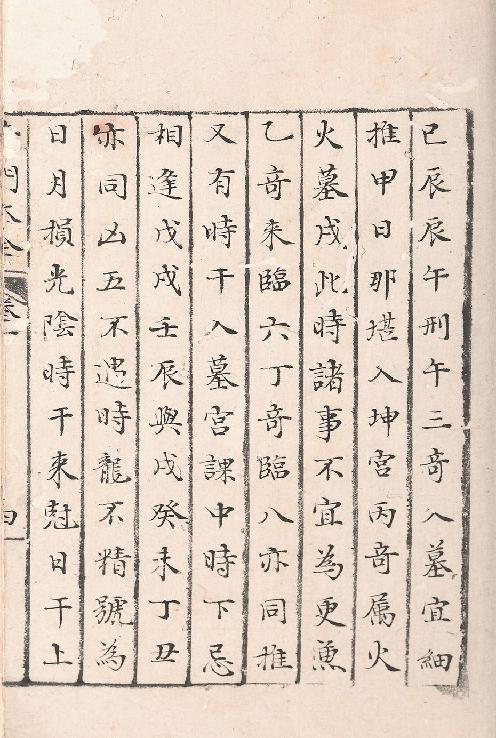 巳辰辰午刑午三奇入墓宜細
推甲日那堪入坤宮丙奇属火
火墓戌此時諸事不宜為更兼
乙奇來臨六丁奇臨八亦同推
又有時干入墓宮課中時下忌
相逢戊戌壬辰與戊癸未丁丑
亦同凶五不遇時龍不精號為
日月損光陰時干来尅日干上
門大全
卷一
四